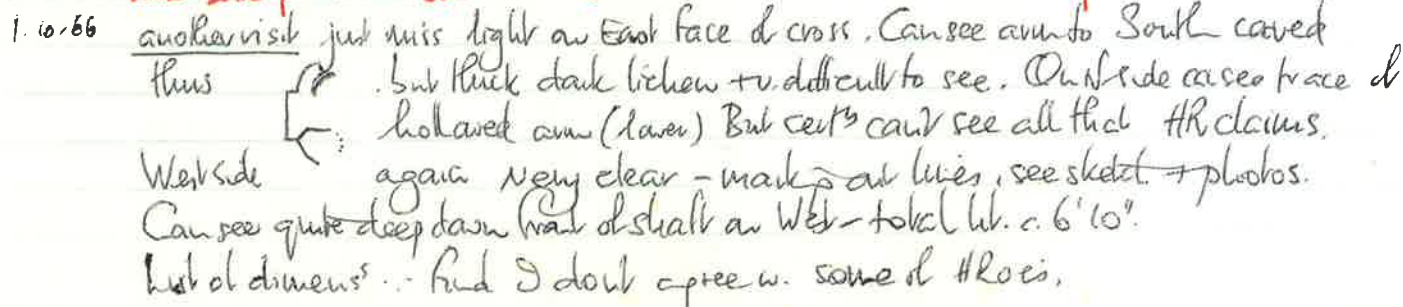 1.10.66 another visit just miss light on East face of cross. Can see arm to South carved
thus . but thick dark lichen + v. difficult to see. On N side can see trace of
hollowed arm (lower) But certly can't see all that HR claims.
West side again very clear - mark out lines, see sketch + photos.
Can see quite deep down front of shaft on West - total ht. c. 6'10".
List of dimens - find I don't agree w. some of HRoe's.